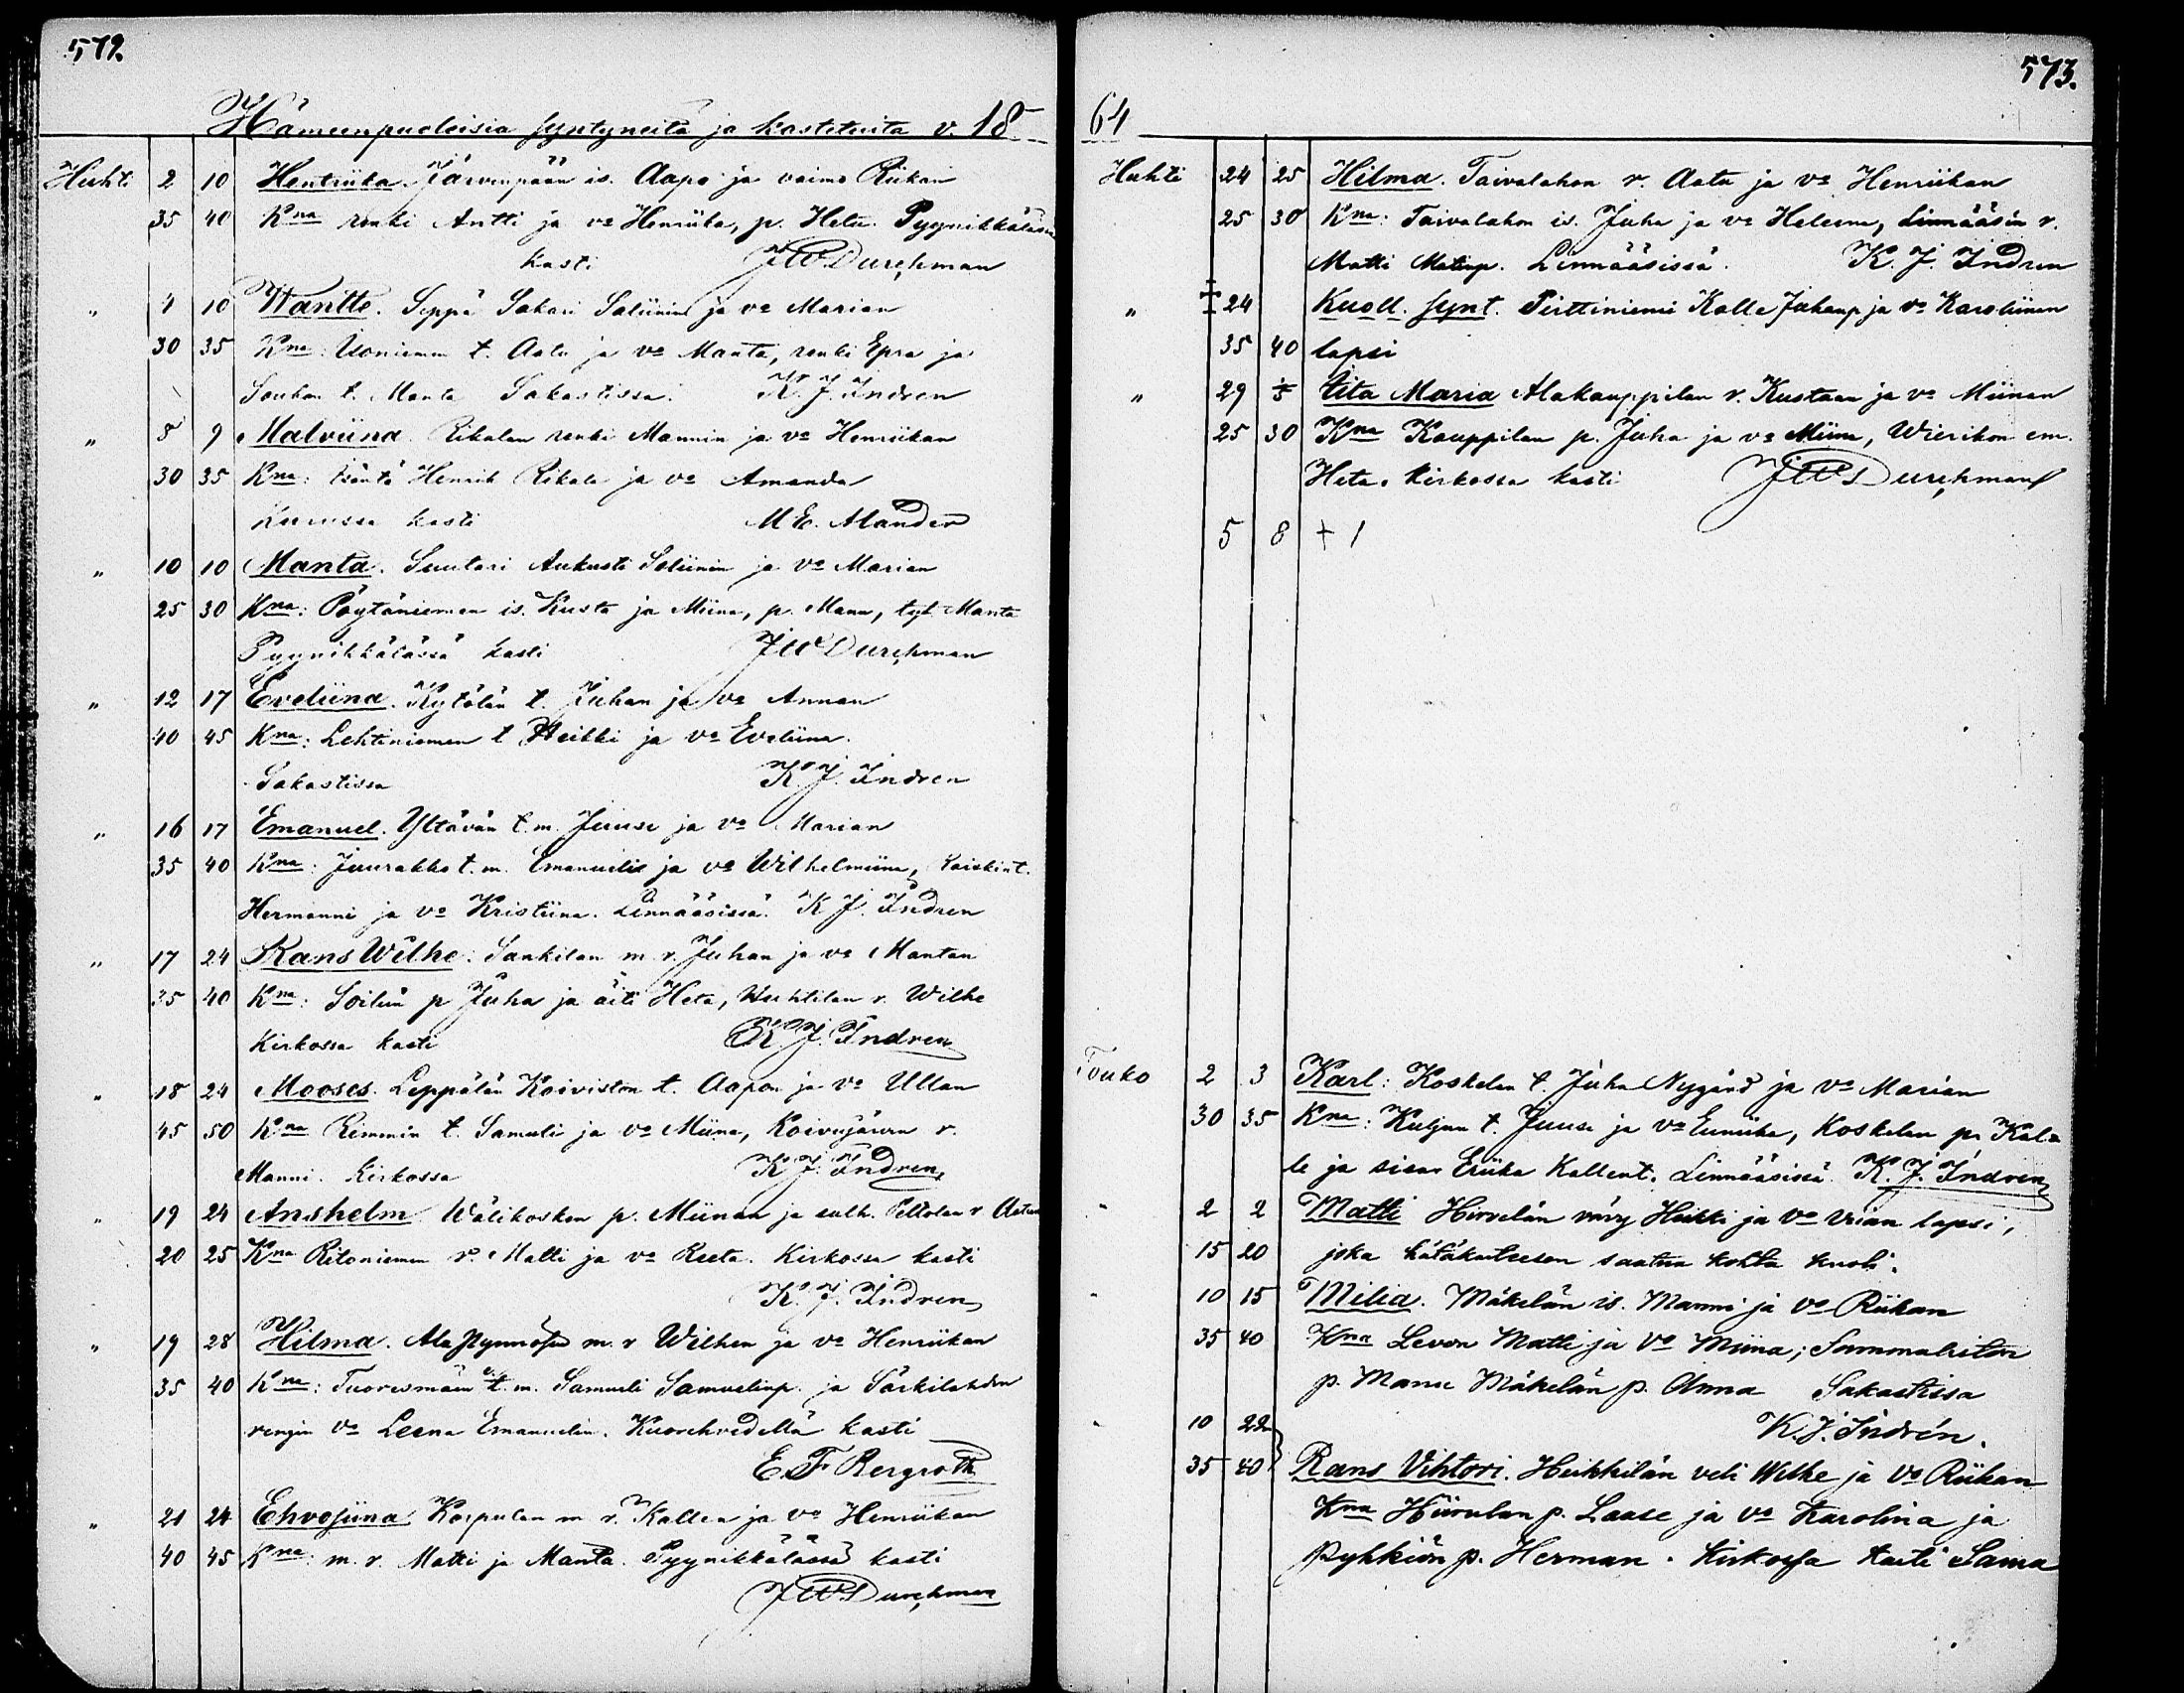 572.
Hämeenpuoleisia syntyneitä ja kastetuita v. 18
Huhti 2 10 Hentriika Järvenpään is. Aapo ja vaimo Riikan
35 40 Kna renki Antti ja vo Henriika, p. Heta. Pyynikkälässä
kasti JW Durchman
„ 4 10 Wantte. Seppä Sakari Saliinin ja vo Marian
30 35 Kna: Uoniemen t. Aatu ja vo Manta, renki Epra ja
Souhan t. Manta Sakastissa. K. J. Indren
„ 5 9 Malviina Rikalan renki Mannin ja vo Henriikan
30 35 Kna: Isäntä Henrik Rikala ja vo Amanda
Kurussa kasti M. E. Alander
„ 10 10 Manta. Suutari Aukusti Soliinin ja vo Marian
25 30 Kna: Pöytäniemen is. Kusta ja Miina, p. Manu, tyt. Manta
Pyynikkälässä kasti JW Durchman
„ 12 17 Eveliina. Kytölän t. Juhan ja vo Annan
40 45 Kna: Lehtiniemen t Heikki ja vo Eveliina.
Sakastissa K. J. Indren
„ 16 17 Emanuel. Yltävän t.m. Juuse ja vo Marian
35 40 Kna: Juurakko t.m. Emanuelis ja vo Wilhelmiina,
Hermanni ja vo Kristiina. Linnääsissä. K J. Indren
„ 17 24 Rans Wilhe: Sankilan m. r. Juhan ja vo Mantan
35 40 Kna: Soilun p Juha ja äiti Heta, Huhtilan r. Wilhe
Kirkossa kasti K. J. Indren
„ 18 24 Mooses. Leppälän Koiviston t. Aapon ja vo Ullan
45 50 Kna Rimmin t. Samuli ja vo Miina, Koivujärven r.
Manni. Kirkossa K. J. Indren
„ 19 24 Anshelm. Wälikosken p. Miinan ja sulh. Peltolan r Aatun
20 25 Kna Ritoniemen r. Matti ja vo Reeta. Kirkossa kasti
K. J. Indren
„ 19 28 Hilma. Ala m. r Wilhen ja vo Henriikan
35 40 Kna: Tuoresmäen t. m. Samuli Samuelinp. ja Särkilahden
rengin vo Leena Emanuelin. Kuorehvedellä kasti
E. F. Bergroth
„ 21 24 Ehvosiina Korpulan m r. Kallen ja vo Henriikan
40 45 Kna: m. r. Matti ja Manta. Pyynikkälässä kasti
JW Durchman
573.
64
Huhti 24 25 Hilma. Taivalahon r. Aatu ja vo Henriikan
25 30 Kna: Taivalahon is. Juha ja vo Heleena, Linnääsin r.
Matti Matinp. Linnääsissä. K. J. Indren
„ + 24 Kuoll. synt. Pirttiniemi Kalle Juhanp ja vo Karoliinan
35 40 lapsi
„ 29 1/5 Iita Maria Alakauppilan r. Kustaan ja vo Miinan
25 30 Kna Kauppilan p. Juha ja vo Miina, Wierikon em.
Heta. Kirkossa kasti JW Durchman
5 8 + 1
Touko 2 3 Karl: Koskelan t. Juha Nygård ja vo Marian
30 35 Kna: Kuljun t. Juuse ja vo Euniika, Koskelan p. Kal=
le ja sisar Eriika Kallent. Linnääsissä. K. J. Indren
" 2 2 Matti Hirvelän väv Heikki ja vo lapsi,
15 20 joka hätäkasteesen saatua kohta kuoli.
" 10 15 Milia. Mäkelän is. Manni ja vo Riikan
35 40 Kna Levon Matti ja vo Miina; Sammaliston
p. Manu Mäkelän p. Anna Sakastissa
K. J. Indrén.
" 10 22
35 40 Rans Vihtori. Heikkilän veli Wilhe ja vo Riikan
Kna Hiirulan p. Laase ja vo Karolina ja
Pyhkiön p. Herman. Kirkossa kasti Sama